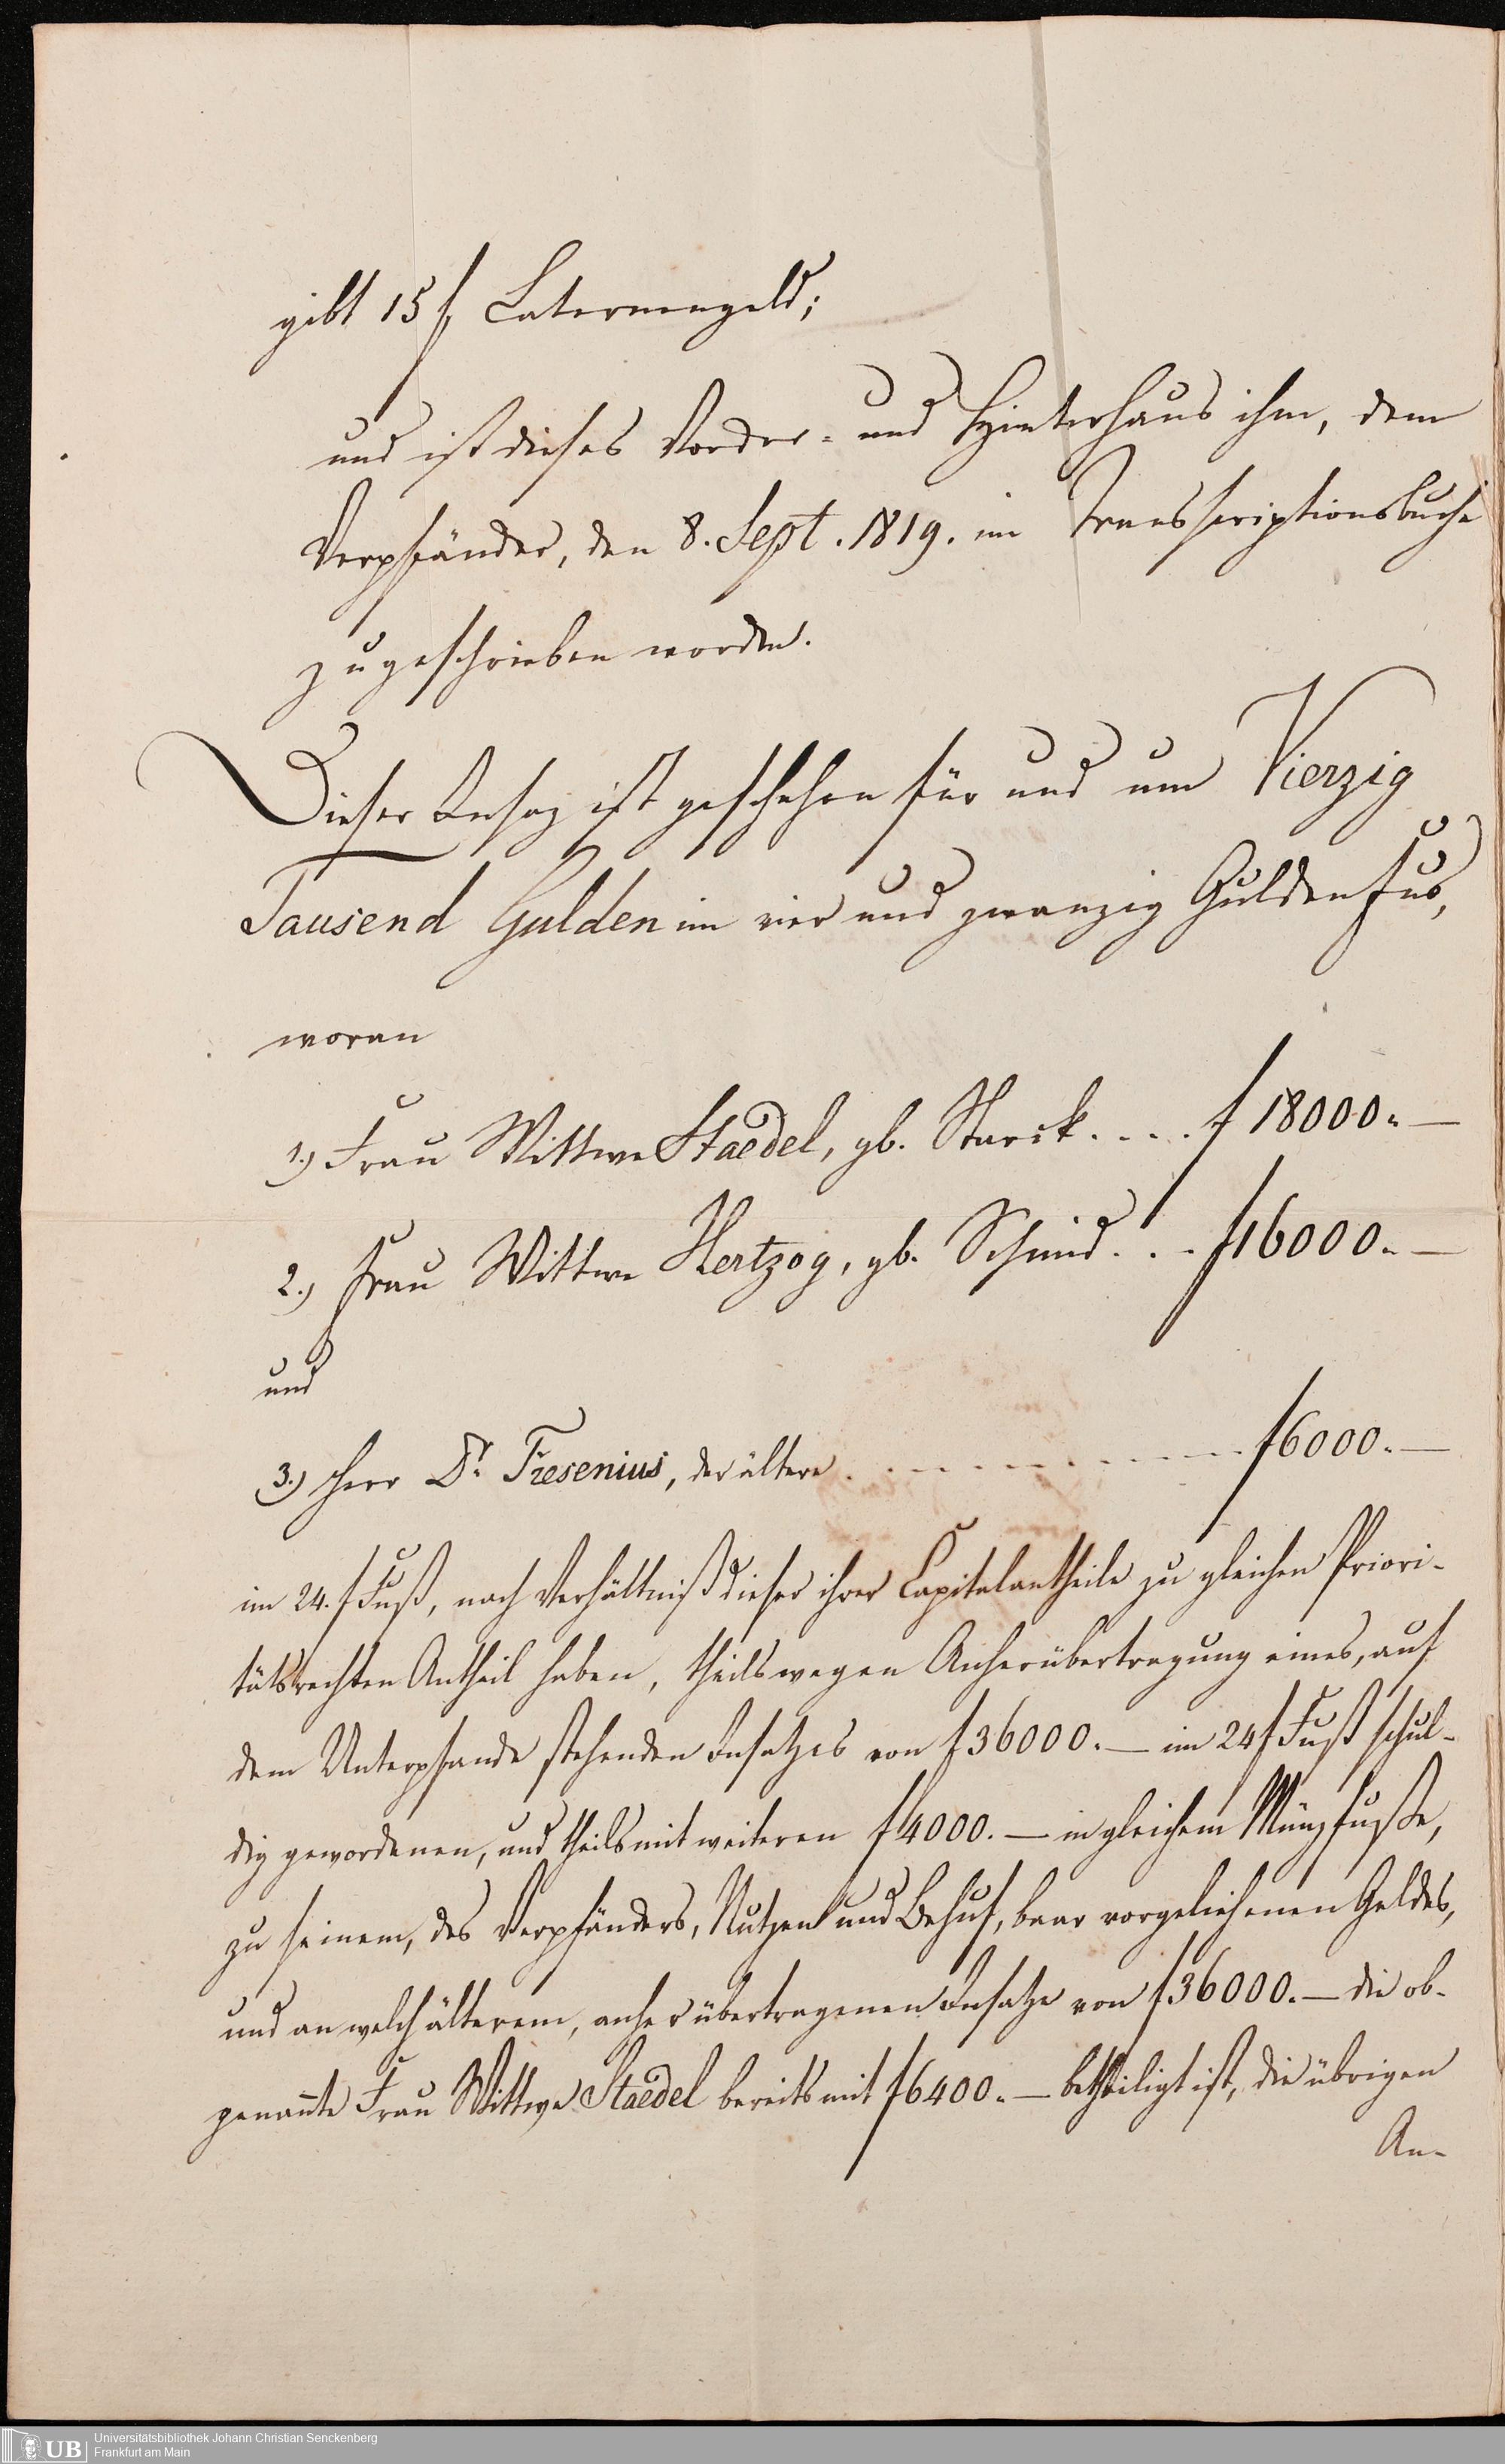 gibt 15 f Laternengeld;
und ist dieses Vorder- und Hinterhaus ihm, dem
Verpfänder, den 8. Sept. 1819. im Transscriptionsbuche
zugeschrieben worden.
Dieser Insaz ist geschehen für und um Vierzig
Tausend Gulden im vier und zwanzig Guldenfus,
woran
1.) Frau Wittwe Staedel, gb. Starck.... f 18000.-
2.) Frau Wittwe Hertzog, gb. Schmid... f 16000.-
und
3.) Herr Dr. Fresenius, der ältere............ f 6000.-
im 24. f Fuß, nach Verhältniß dieser ihrer Capitalantheile zu gleichen Priori-
tätsrechten Antheil haben, theils wegen Anherübertragung eines, auf
dem Unterpfande stehenden Insatzes von f 36000.- im 24 f Fuß schul-
dig gewordenen, und theils mit weiteren f 4000.- in gleichem Münzfuße,
zu seinem, des Verpfänders, Nutzen und Behuf, baar vorgeliehenen Geldes,
und an welch älterem, anher übertragenen Insatze von f 36000.- die ob-
genannte Frau Wittwe Staedel bereits mit f 6400.- betheiligt ist, die übrigen
An-
UB
Universitätsbibliothek Johann Christian Senckenberg
Frankfurt am Main